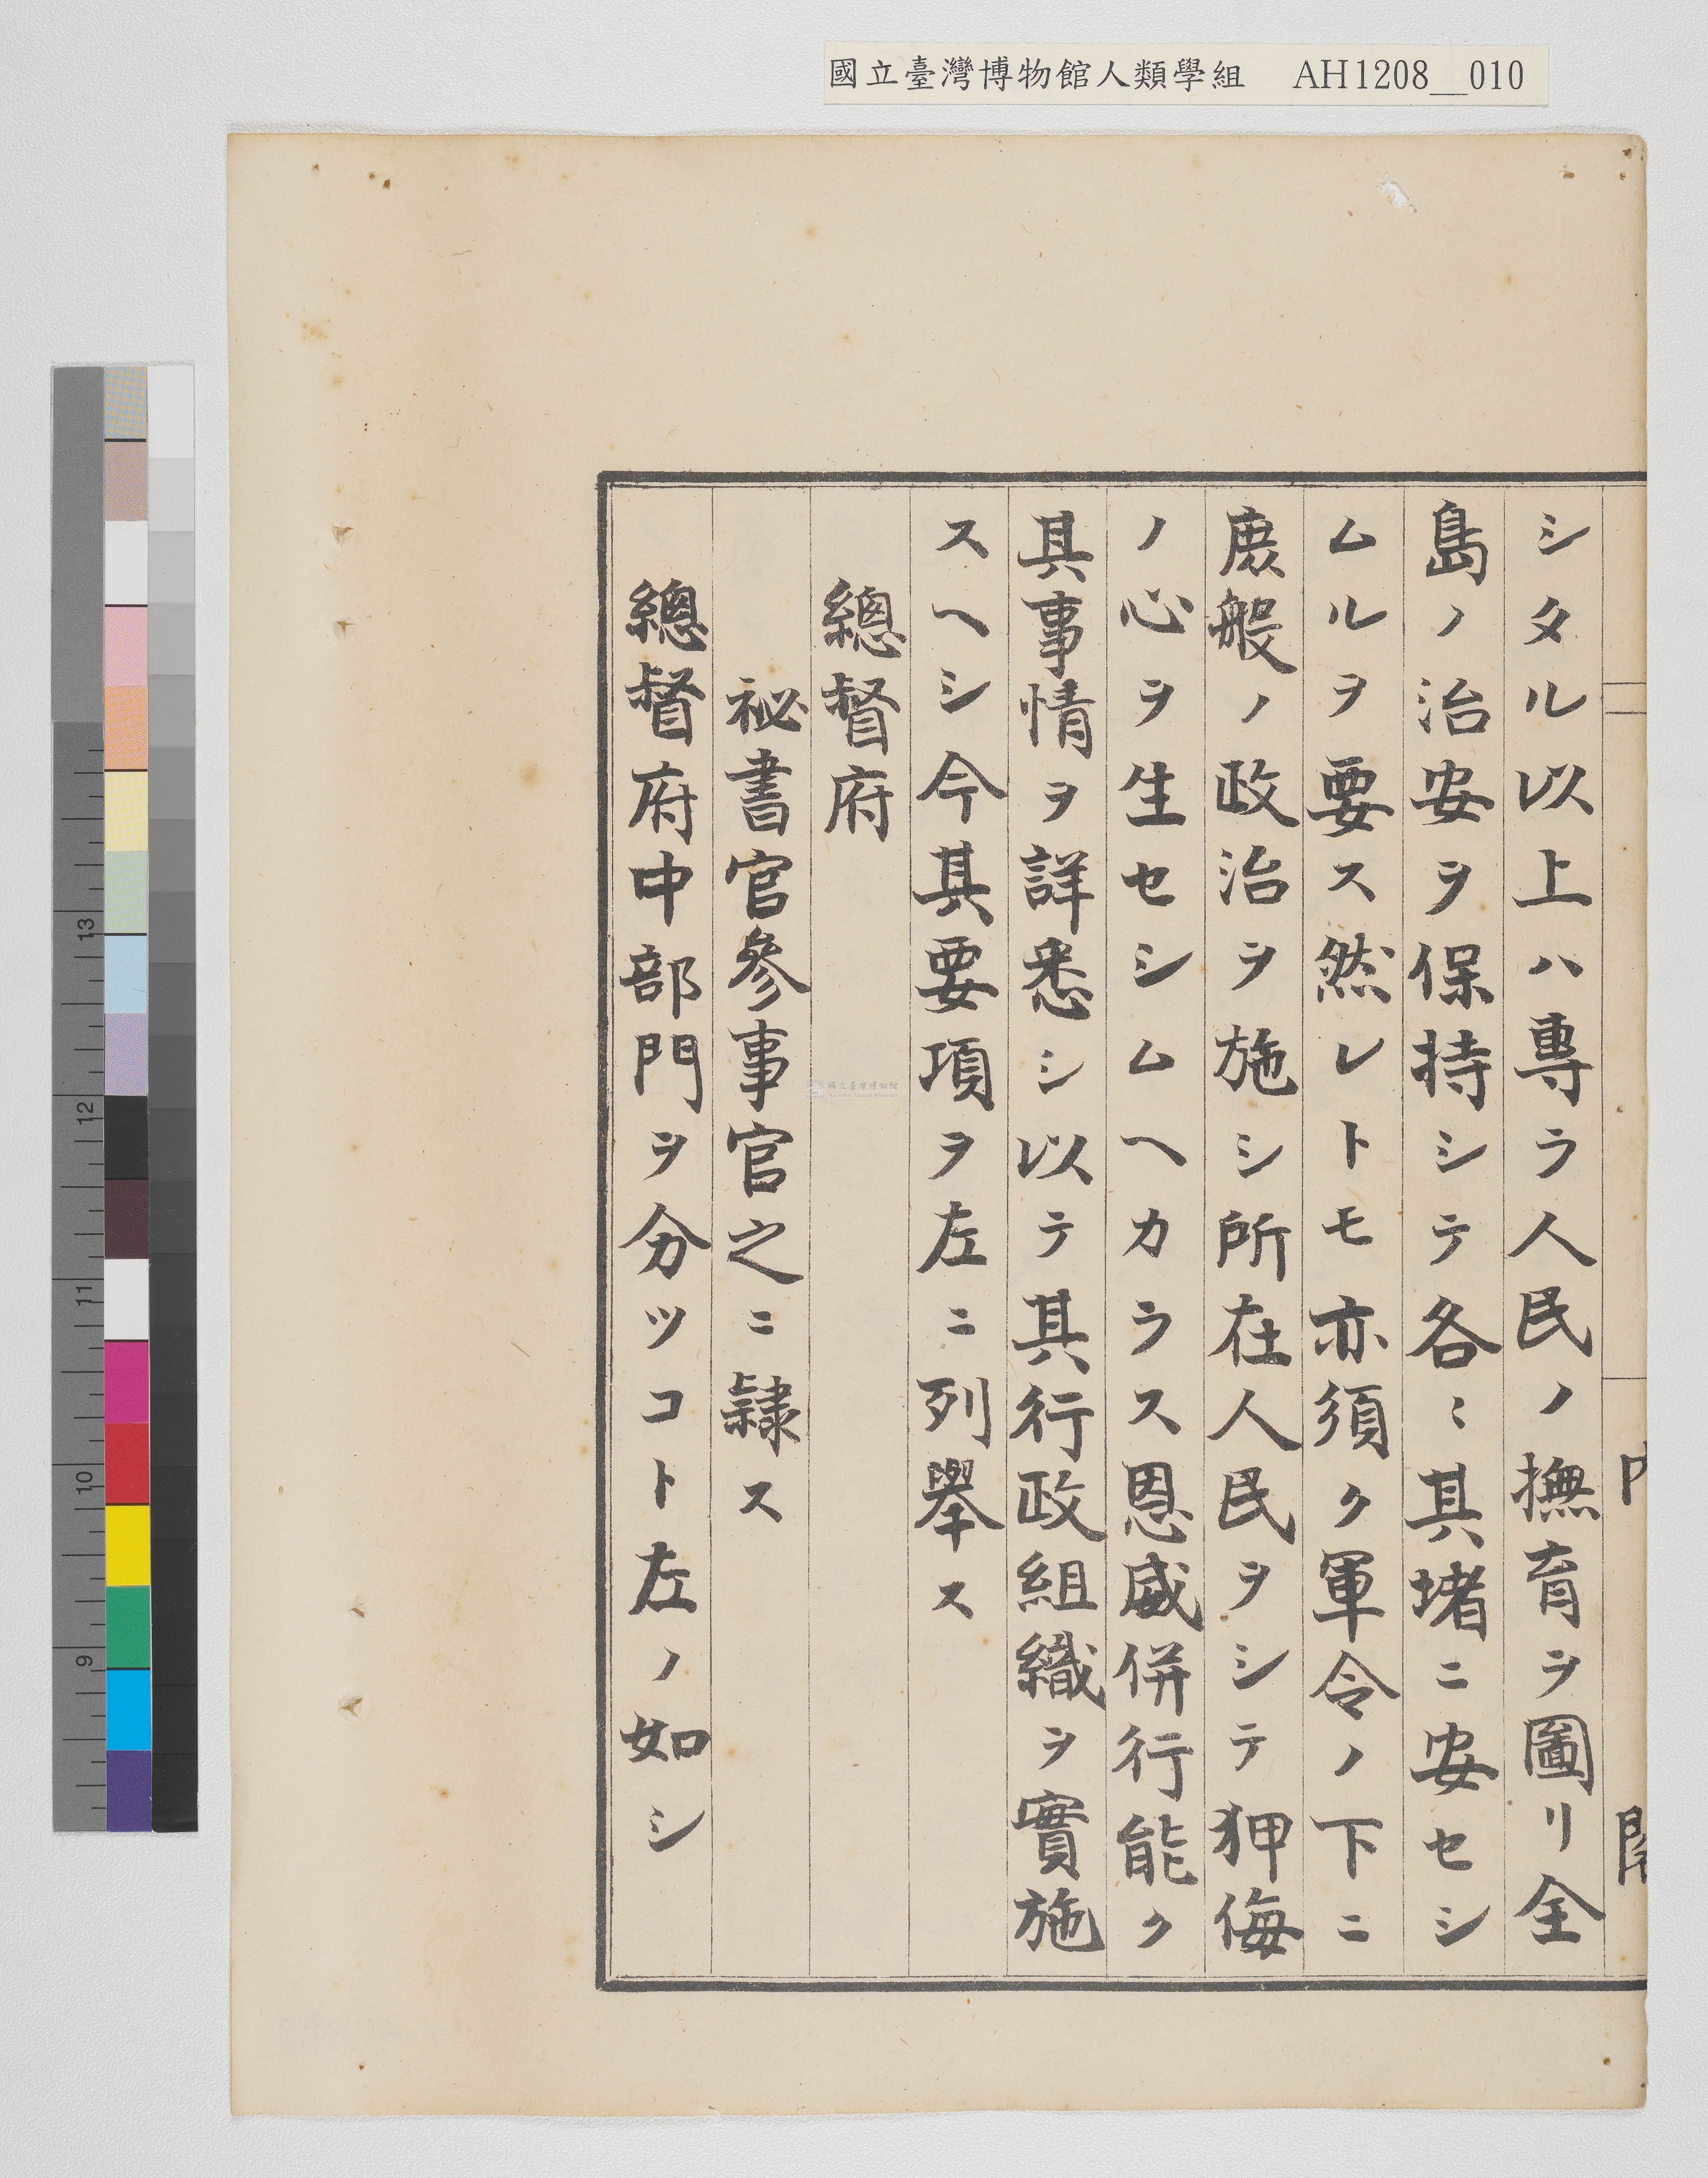 國立臺灣博物館人類學組 AH1208__010
シタル以上ハ專ラ人民ノ撫育ヲ圖リ全
島ノ治安ヲ保持シテ各〻其堵ニ安セシ
ムルヲ要ス然レトモ亦須ク軍令ノ下ニ
庶般ノ政治ヲ施シ所在人民ヲシテ狎侮
ノ心ヲ生セシムヘカラス恩威併行能ク
其事情ヲ詳悉シ以テ其行政組織ヲ實施
スヘシ今其要項ヲ左ニ列擧ス
總督府
祕書官參事官之ニ隷ス
總督府中部門ヲ分ツコト左ノ如シ
13
12
11
10
9